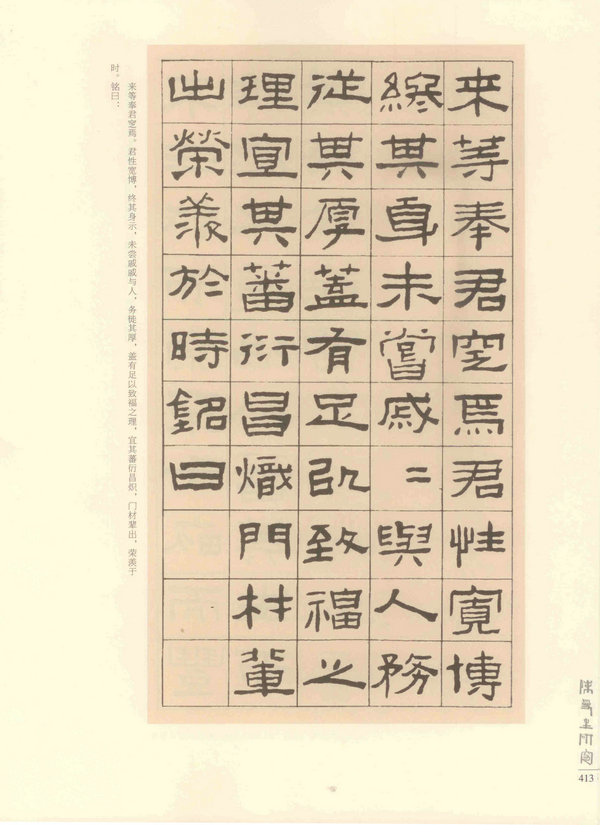 来等奉君窆焉君性寬博
終其身未嘗戚〻與人務
從其厚蓋有足以致福之
理宜其蕃衍昌熾門材輩
出榮羨於時銘曰
来等奉君窆焉。君性宽博，终其身示，未尝戚戚与人，务徒其厚，盖有足以致福之理，宜其蕃衍昌炽，门材辈出，荣羡于
时。铭曰：
413